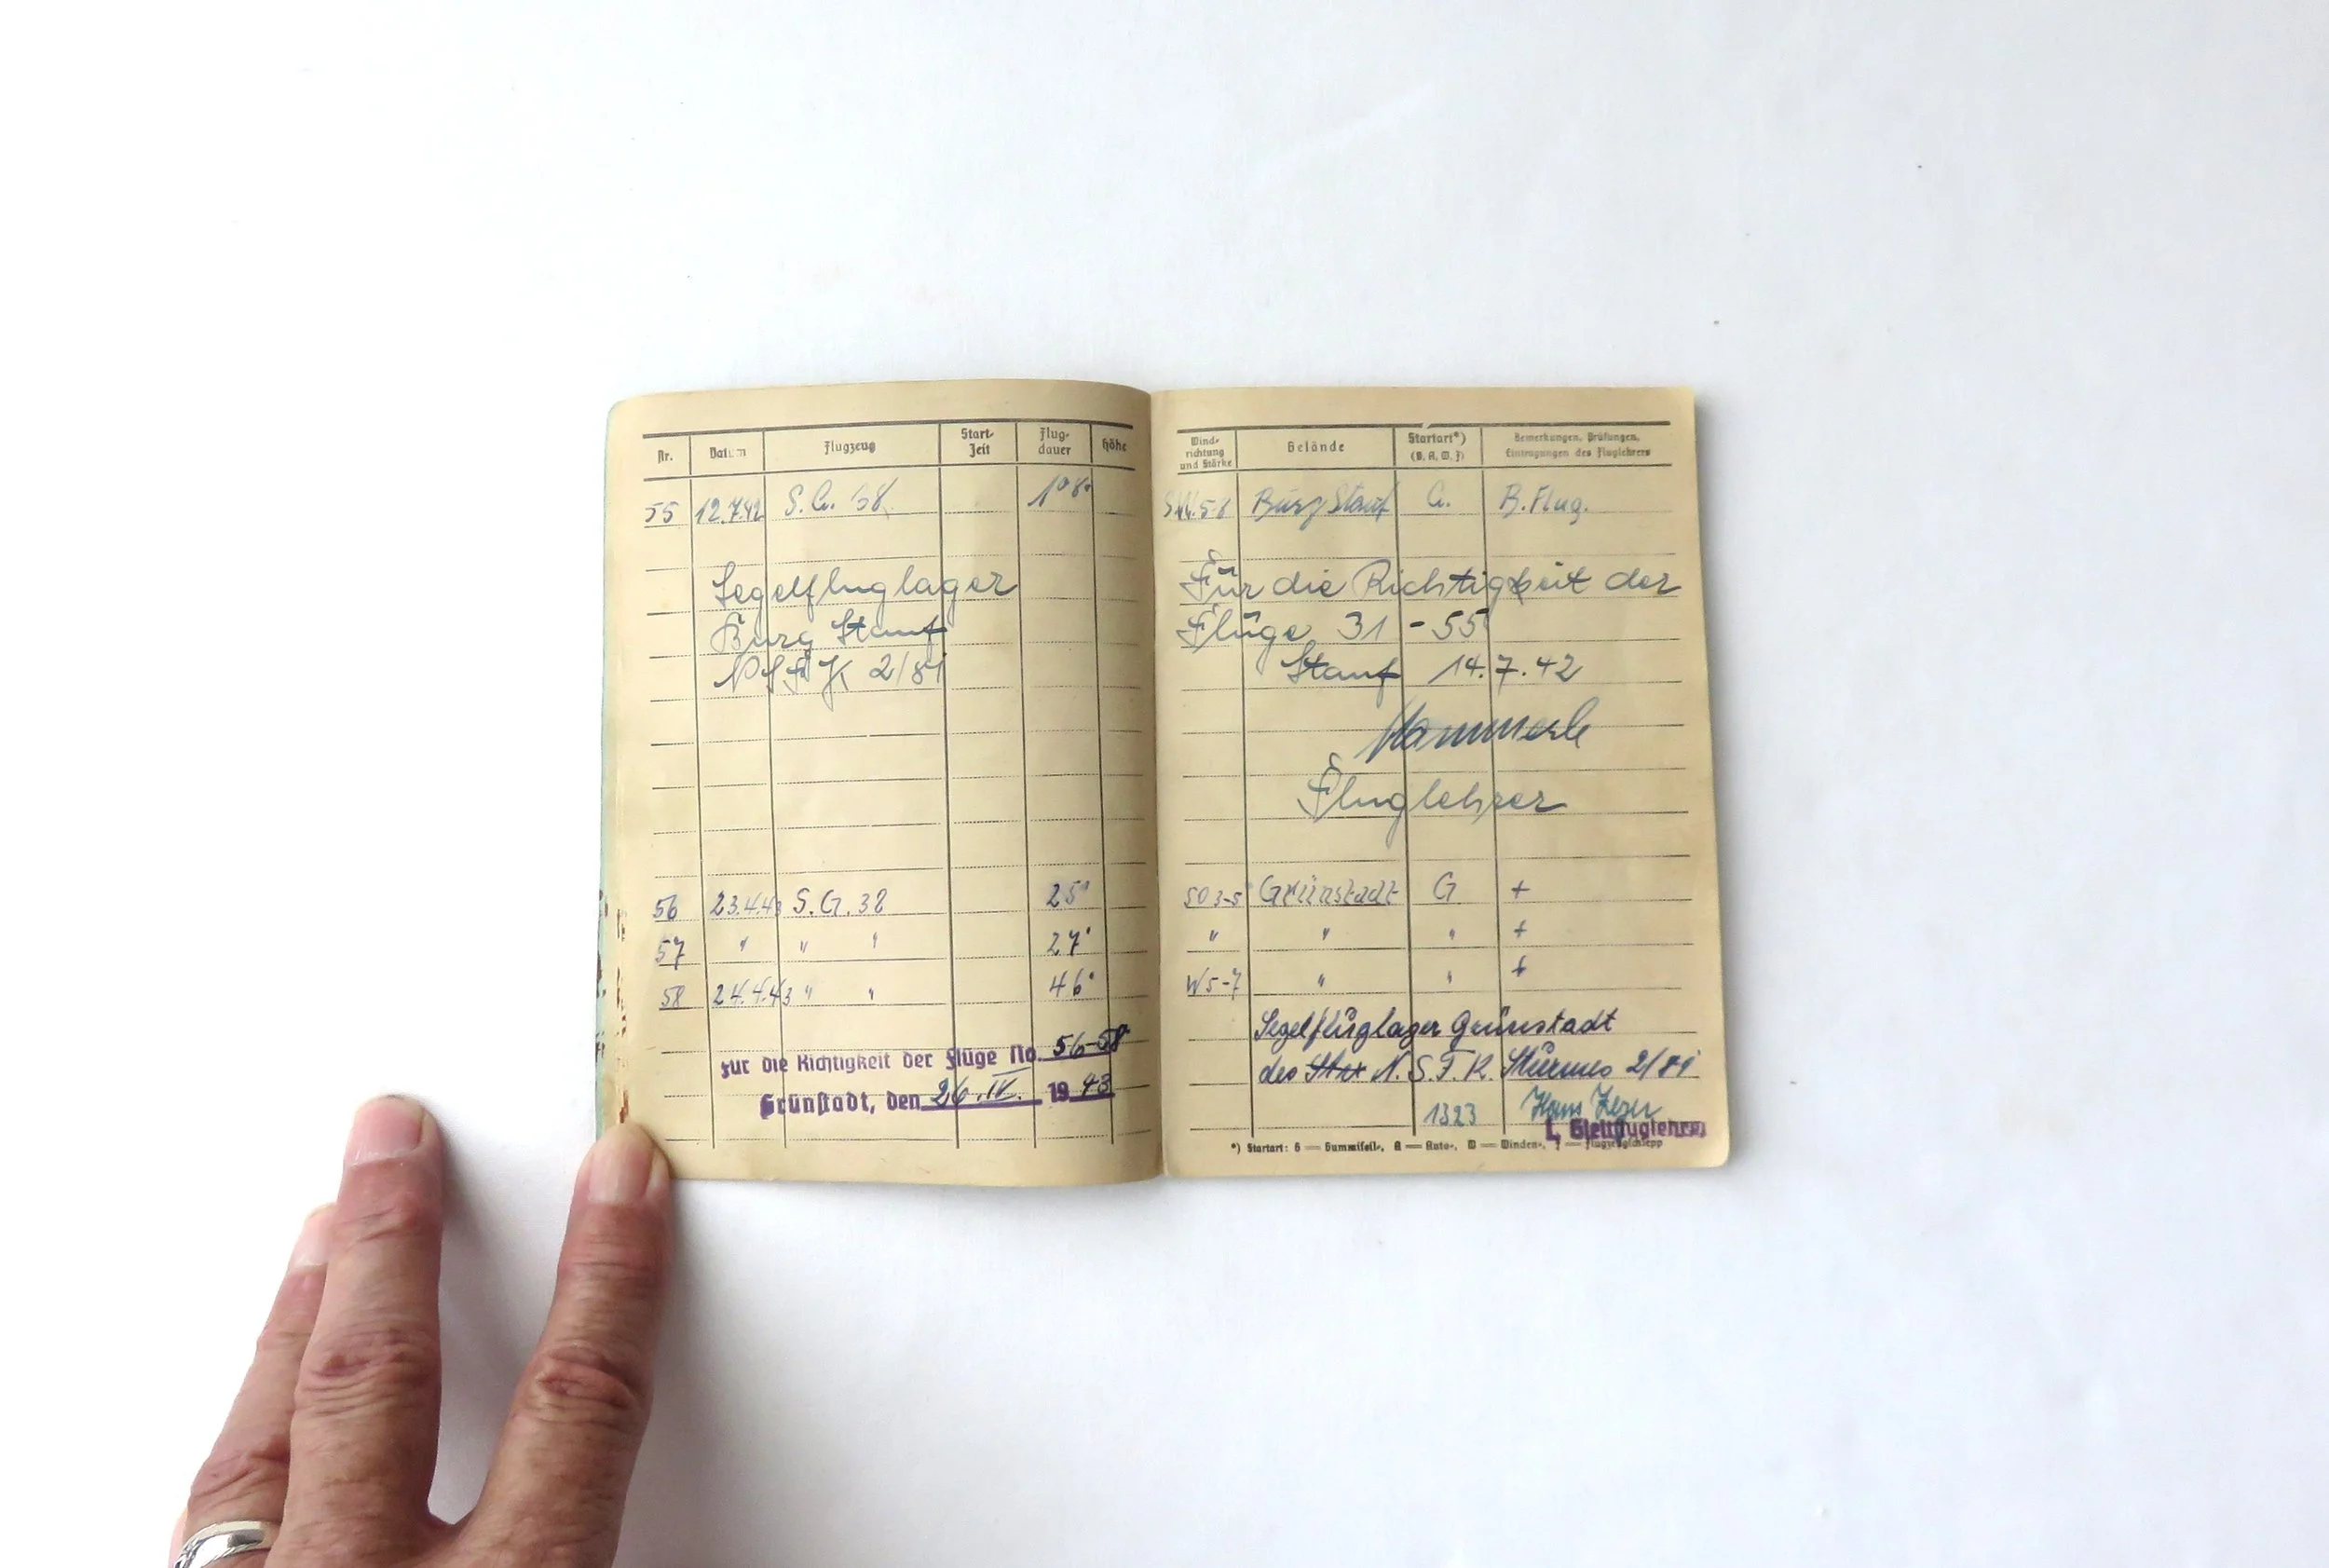 Nr. Datum Flugzeug Start-Zeit Flug-dauer Höhe
55 12.7.42 S.G. 38 1'08"
Segelfluglager
Burg Stauf
NSFK 2/81
56 23.4.43 S.G. 38 25"
57 " " " 27"
58 24.4.43 " " 46"
Für die Richtigkeit der Flüge No. 56-58
Grünstadt, den 26.IV. 1943
Wind-richtung und Stärke Gelände Startart*) (G, A, W, F) Bemerkungen, Prüfungen, Eintragungen des Fluglehrers
Burg Stauf G. B. Flug.
Für die Richtigkeit der
Flüge 31 - 55
Stauf 14.7.42
Fluglehrer
SO 3-5 Grünstadt G +
" " " +
W 5-7 " " +
Segelfluglager Grünstadt
des N.S.F.K. Sturmes 2/81
1323 Hans
Gleitfluglehrer
*) Startart: G = Gummiseil-, A = Auto-, W = Winden-, F = Flugzeugschlepp